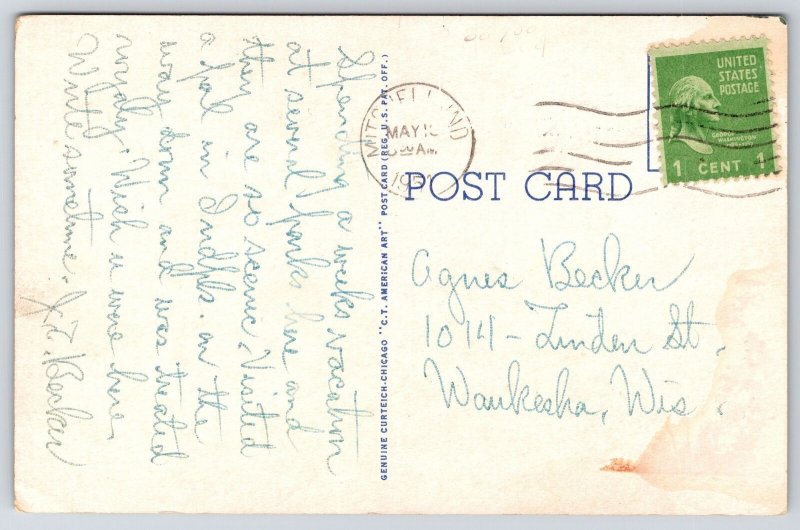 Spending a weeks vacation
at several parks here and
they are so scenic. Visited
a pal in Indpls. on the
way down and was treated
royally. Wish u were here.
Write sometime.
Becker
GENUINE CURTEICH-CHICAGO "C.T. AMERICAN ART" POST CARD (REG. U.S. PAT. OFF.)
MITCHELL, IND
MAY
AM
UNITED
STATES
POSTAGE
GEORGE
WASHINGTON
1 CENT 1
POST CARD
Agnes Becker
1014 - Linden St.
Waukesha, Wis.